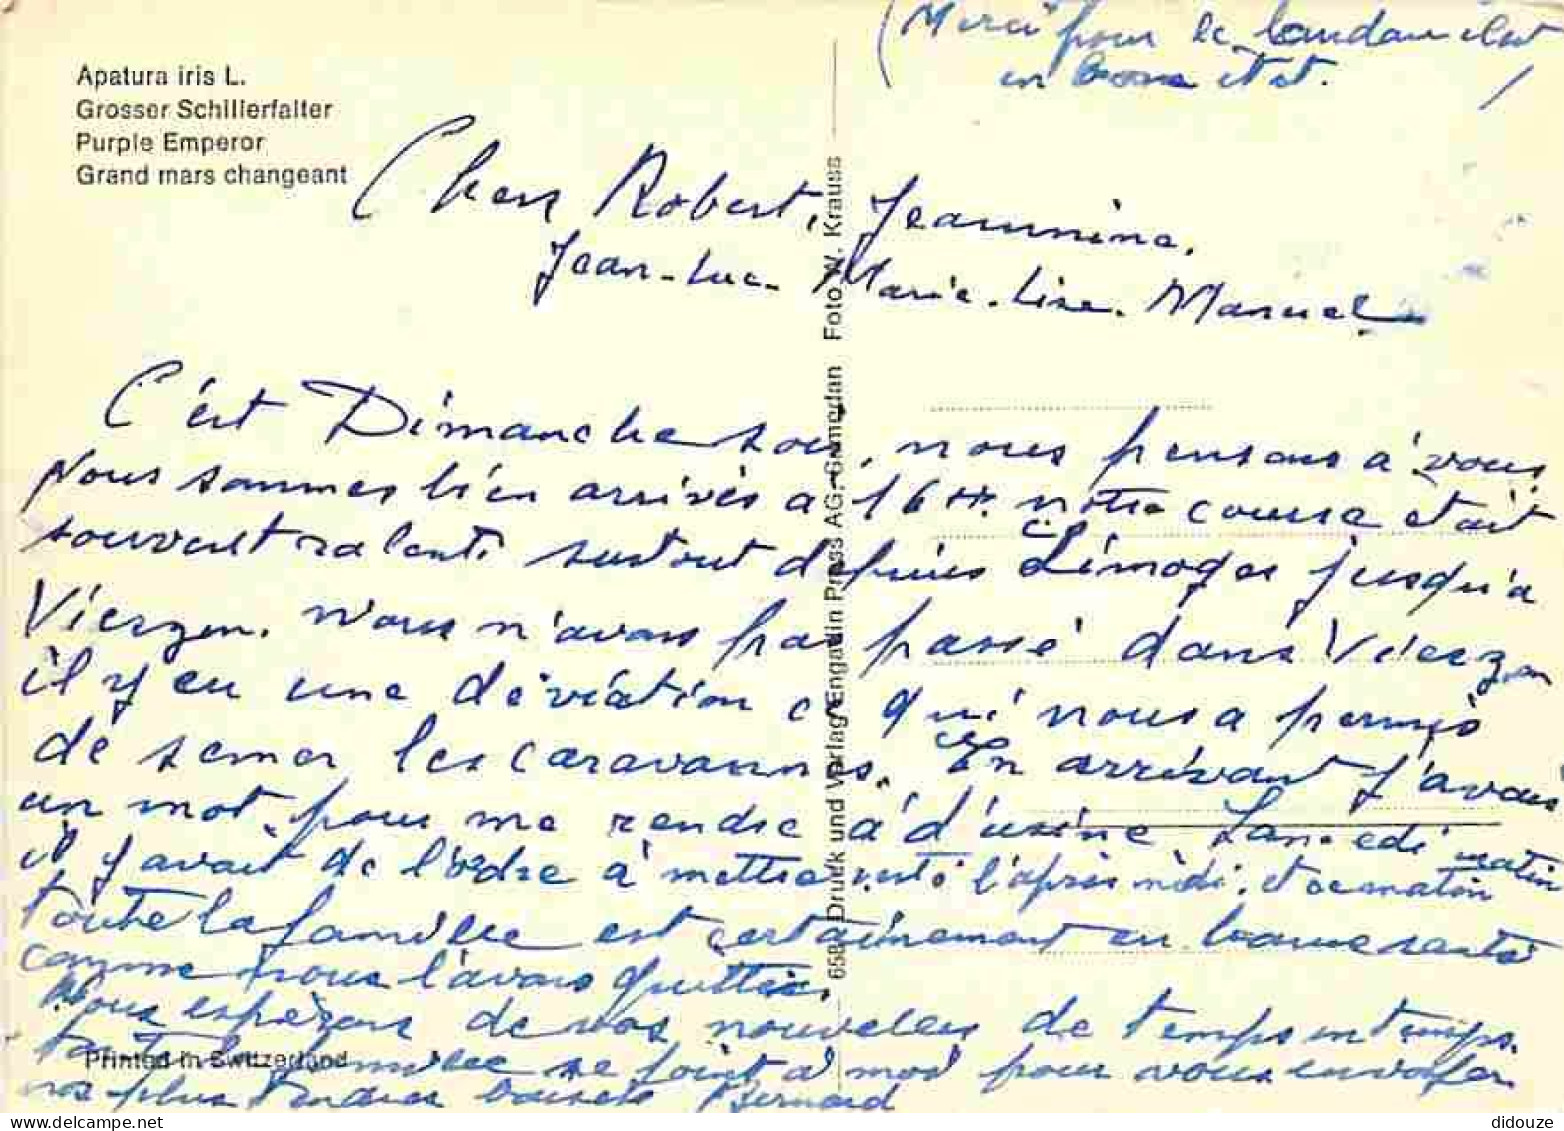 (Merci pour le landau il est
en bons état. )
Apatura iris L.
Grosser Schillerfalter
Purple Emperor
Grand mars changeant
Chers Robert, Jeannine,
Jean-Luc. Marie-Lise. Manuel
C'est Dimanche soir, nous pensons à vous
Nous sommes bien arrivés à 16 H. notre course était
souvent ralenti surtout depuis Limoges jusqu'à
Vierzon. Nous n'avons pas passé dans Vierzon
il y eu une déviation ce qui nous a permis
de semer les caravannes. En arrivant j'avais
un mot, pour me rendre à d'usine Samedi matin
il y avait de l'ordre à mettre l'après midi. et ce matin
Toute la famille est certainement en bonne santé
comme nous l'avons quittés.
Nous espérons de vos nouvelles de temps en temps.
toute la famille se joint à moi pour vous envoyer
nos plus tendres baisers Bernard
Printed in Switzerland
Druck und Verlag Engadin Press AG, Samedan Foto W. Krauss
delcampe.net
didouze